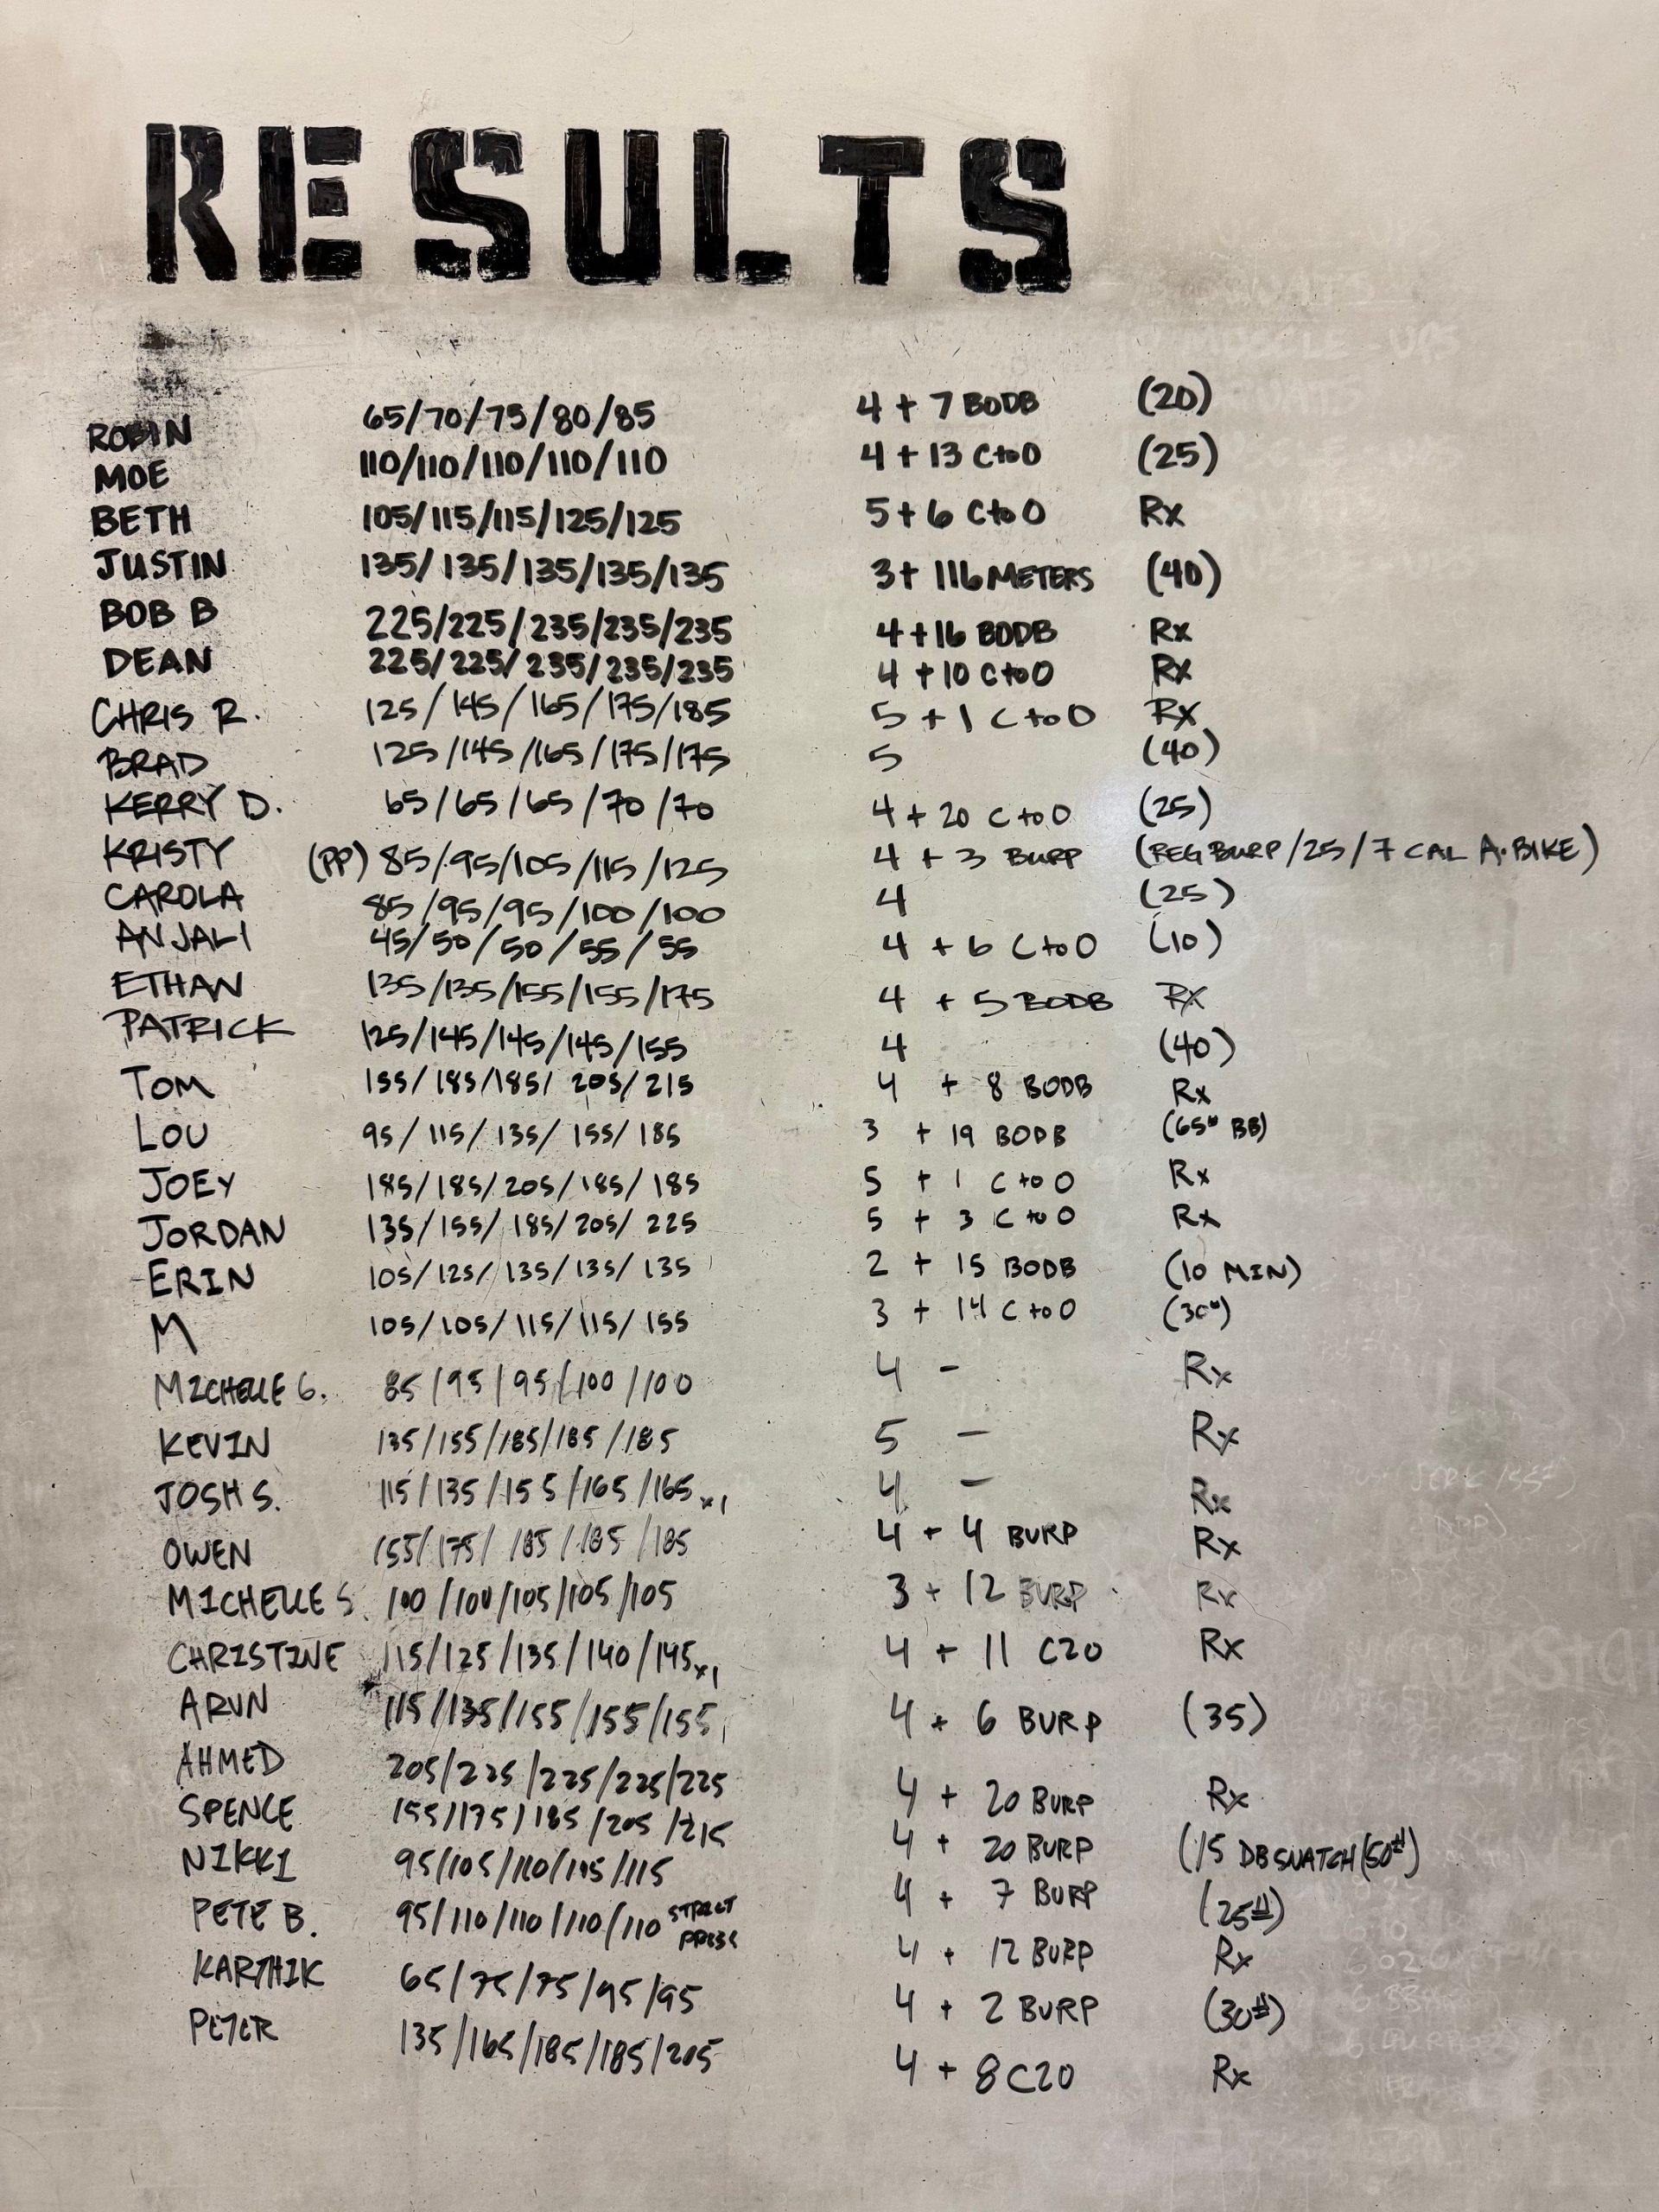 RESULTS
ROBIN 65/70/75/80/85 4 + 7 BODB (20)
MOE 110/110/110/110/110 4 + 13 C to O (25)
BETH 105/115/115/125/125 5 + 6 C to O Rx
JUSTIN 135/135/135/135/135 3 + 116 METERS (40)
BOB B 225/225/235/235/235 4 + 16 BODB Rx
DEAN 225/225/235/235/235 4 + 10 C to O Rx
CHRIS R. 125/145/165/175/185 5 + 1 C to O Rx
BRAD 125/145/165/175/175 5 (40)
KERRY D. 65/65/65/70/70 4 + 20 C to O (25)
KRISTY (PP) 85/95/105/115/125 4 + 3 BURP (REG BURP/25/7 CAL A.BIKE)
CAROLA 85/95/95/100/100 4 (25)
ANJALI 45/50/50/55/55 4 + 6 C to O (10)
ETHAN 135/135/155/155/175 4 + 5 BODB Rx
PATRICK 125/145/145/145/155 4 (40)
TOM 155/185/185/205/215 4 + 8 BODB Rx
LOU 95/115/135/155/185 3 + 19 BODB (65# BB)
JOEY 185/185/205/185/185 5 + 1 C to O Rx
JORDAN 135/155/185/205/225 5 + 3 C to O Rx
ERIN 105/125/135/135/135 2 + 15 BODB (10 MIN)
M 105/105/115/115/155 3 + 14 C to O (30#)
MICHELLE G. 85/95/95/100/100 4 - Rx
KEVIN 135/155/185/185/185 5 - Rx
JOSH S. 115/135/155/165/165 x1 4 - Rx
OWEN 155/175/185/185/185 4 + 4 BURP Rx
MICHELLE S. 100/100/105/105/105 3 + 12 BURP Rx
CHRISTINE 115/125/135/140/145 x1 4 + 11 C2O Rx
ARUN 115/135/155/155/155 4 + 6 BURP (35)
AHMED 205/225/225/225/225 4 + 20 BURP Rx
SPENCE 155/175/185/205/215 4 + 20 BURP (15 DB SNATCH (50#)
NIKKI 95/105/110/115/115 4 + 7 BURP (25#)
PETE B. 95/110/110/110/110 STRICT PRESS 4 + 12 BURP Rx
KARTHIK 65/75/75/95/95 4 + 2 BURP (30#)
PETER 135/165/185/185/205 4 + 8 C2O Rx